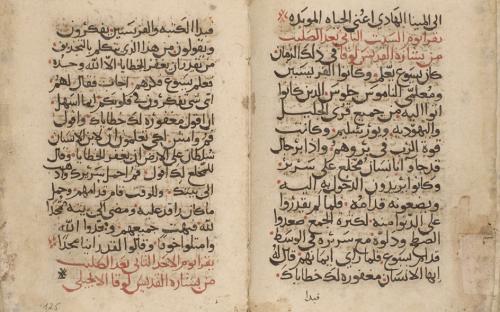 الى المينا الهادي اعني الحياه الموبده
يقرا يوم السبت الثاني بعد الصليب
من بشارة القديس لوقا في ذلك الزمان
كان يسوع يعلم وكانوا الفريسيين
ومعلمي الناموس جلوس الذين كانوا
اتوا اليه من جميع قرى الجليل
واليهوديه ويورشليم وكانت
قوة الرب في بروهم واذا برجال
قد جاو انسانا مخلع على سرير
وكانوا يريدون الدخول به اليه
ويضعونه قدامه فلما لم يقدروا
على منه لكثرة الجمع صعدوا
السطح ودلوه مع سريره في الوسط
قدام يسوع فلما راى ايمانهم قال له
ايها الانسان مغفوره لك خطاياك
فبدا
فبدا الكتبه والفريسيين يفكرون
ويقولون من هذا الذي يتكلم بالتجديف
من يقدر ان يغفر الخطايا الا الله وحده
فعلم يسوع فكرهم اجاب فقال لهم
اي شي تفكرون في قلوبكم ايما اسهل
ان اقول مغفوره لك خطاياك او اقول
قم وامش لكي تعلموا ان لابن الانسان
سلطان على الارض ان يغفر الخطايا وقال
للمخلع لك اقول قم احمل سريرك واذهب
الى بيتك وللوقت قام قدامهم وحمل
ما كان راقد عليه ومضى الى بيته ممجدا
لله فبهت جميعهم ومجدوا الله
وامتلوا خوفا وقالوا لقد راينا مجدا
يقرا يوم الاحد الثاني بعد الصليب
من بشارة القديس لوقا الانجيلي
125